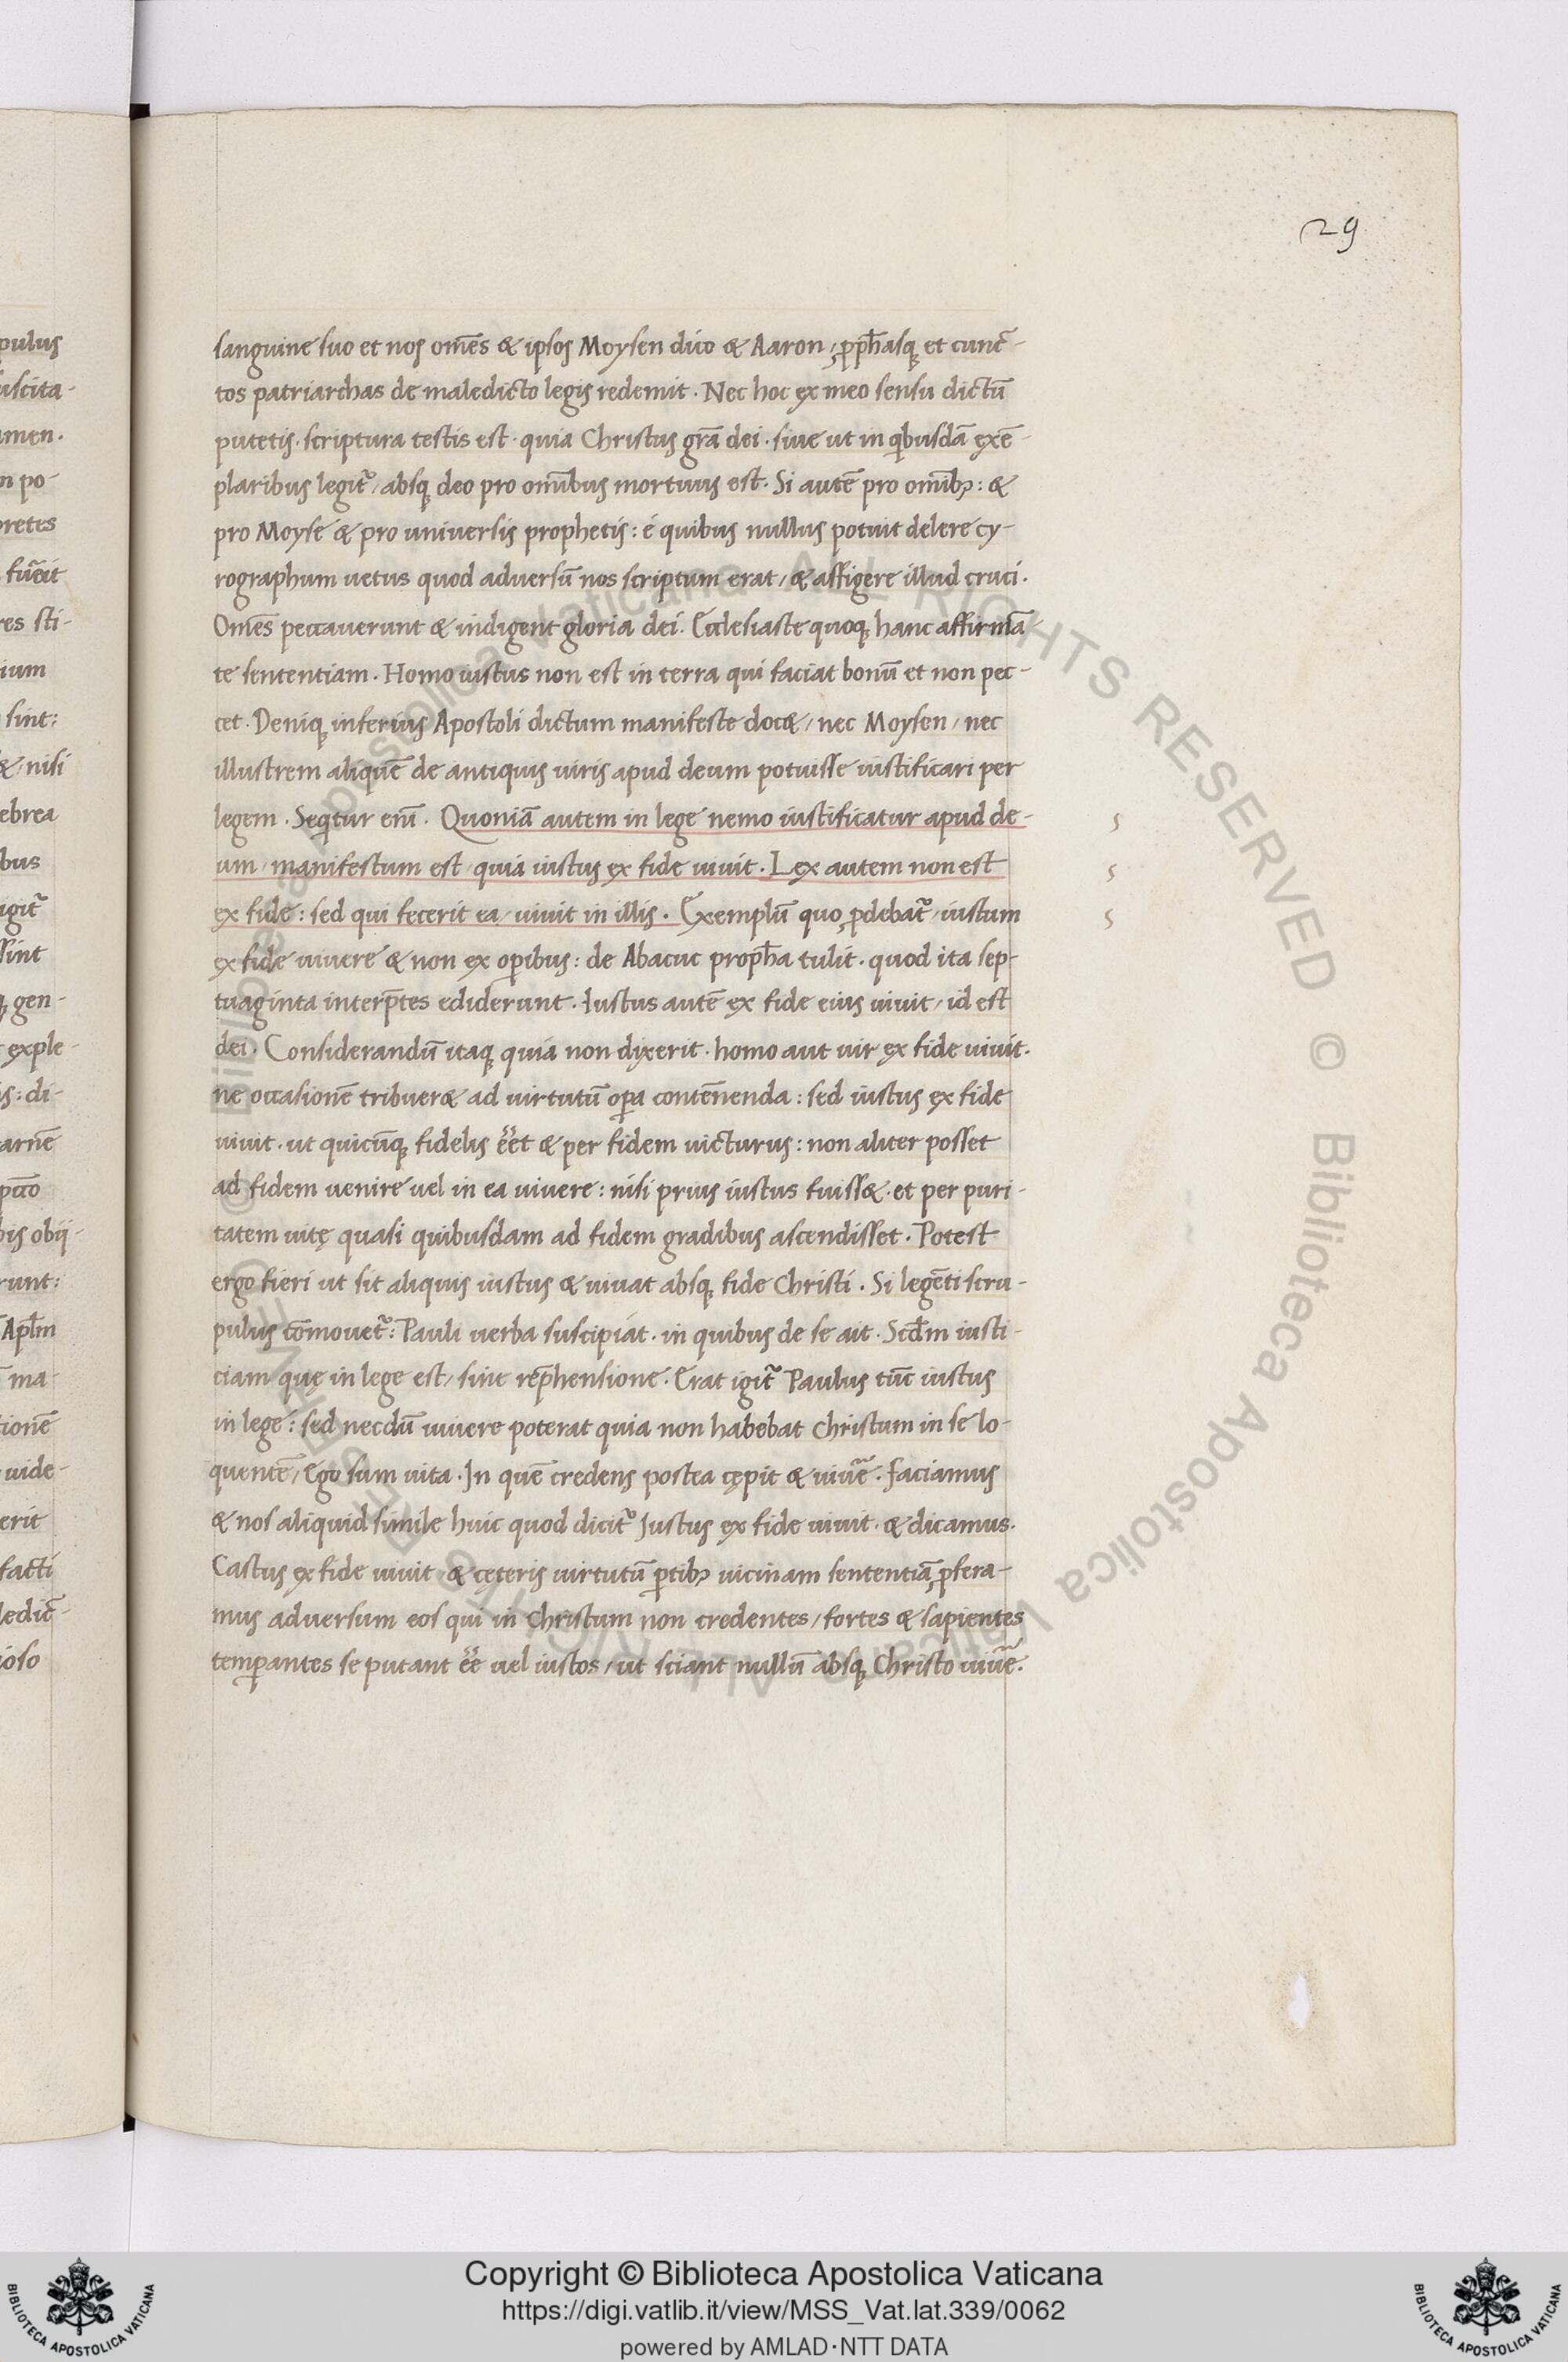 29
sanguine suo et nos om̅es & ipsos Moysen dico & Aaron, ꝓph̅asq; et cunc-
tos patriarchas de maledicto legis redemit. Nec hoc ex meo sensu dictū
putetis. scriptura testis est. quia Christus gr̅a dei. siue ut in qͥbusdā exē-
plaribus legit᷑, absq; deo pro om̅ibus mortuus est. Si autē pro om̅ibꝫ: &
pro Moyse & pro universis prophetis: é quibus nullus potuit delere cy-
rographum vetus quod adversū nos scriptum erat, & affigere illud cruci.
Om̅es peccaverunt & indigent gloria dei. Ecclesiaste quoq; hanc affirmā-
te sententiam. Homo iustus non est in terra qui faciat bonū et non pec-
cet. Deniq; inferius Apostoli dictum manifeste doc&, nec Moysen, nec
illustrem aliquē de antiquis viris apud deum potuisse iustificari per
legem. Seqͥtur eni̅. Quoniā autem in lege nemo iustificatur apud de-
um, manifestum est, quia iustus ex fide vivit. Lex autem non est
ex fide: sed qui fecerit ea, vivit in illis. Exemplū quo ꝓdebat᷑, iustum
ex fide vivere & non ex oꝑibus: de Abacuc proph̅a tulit. quod ita sep-
tuaginta interp̅tes ediderunt. Iustus autē ex fide eius vivit, id est
dei. Considerandū itaq; quia non dixerit. homo aut vir ex fide vivit.
ne occasionē tribuer& ad virtutū oꝑa contēnenda: sed iustus ex fide
vivit. ut quicūq; fidelis e̅e̅t & per fidem victurus: non aliter posset
ad fidem venire vel in ea vivere: nisi prius iustus fuiss&. et per puri-
tatem vitę quasi quibusdam ad fidem gradibus ascendisset. Potest
ergo fieri ut sit aliquis iustus & vivat absq; fide Christi. Si legēti scru-
pulus cōmovet᷑: Pauli verba suscipiat. in quibus de se ait. Scd̅m iusti-
ciam quę in lege est, sine rep̅hensione. Erat igit᷑ Paulus tūc iustus
in lege: sed necdū vivere poterat quia non habebat christum in se lo-
quentē, Ego sum vita. In quē credens postea cępit & viue̅. Faciamus
& nos aliquid simile huic quod dicit᷑ Iustus ex fide vivit. & dicamus.
Castus ex fide vivit & cęteris virtutū ꝑtibꝫ vicinam sententiā ꝓfera-
mus adversum eos qui in christum non credentes, fortes & sapientes
temꝑantes se putant e̅e̅ vel iustos, ut sciant nullū absq; Christo viue̅.
pulus
uscita-
amen.
n po-
pretes
sti-
ium
sint:
&, nisi
ebrea
bus
igit᷑
sint
q; gen-
exple-
is: di-
arnē
bis obij-
runt:
Apl̅m
ma-
tionē
vide-
erit
facti
ledic-
ioso
© Biblioteca Apostolica Vaticana ALL RIGHTS RESERVED © Biblioteca Apostolica Vaticana ALL RIGHTS RESERVED
Copyright © Biblioteca Apostolica Vaticana
https://digi.vatlib.it/view/MSS_Vat.lat.339/0062
powered by AMLAD·NTT DATA
BIBLIOTECA APOSTOLICA VATICANA
BIBLIOTECA APOSTOLICA VATICANA